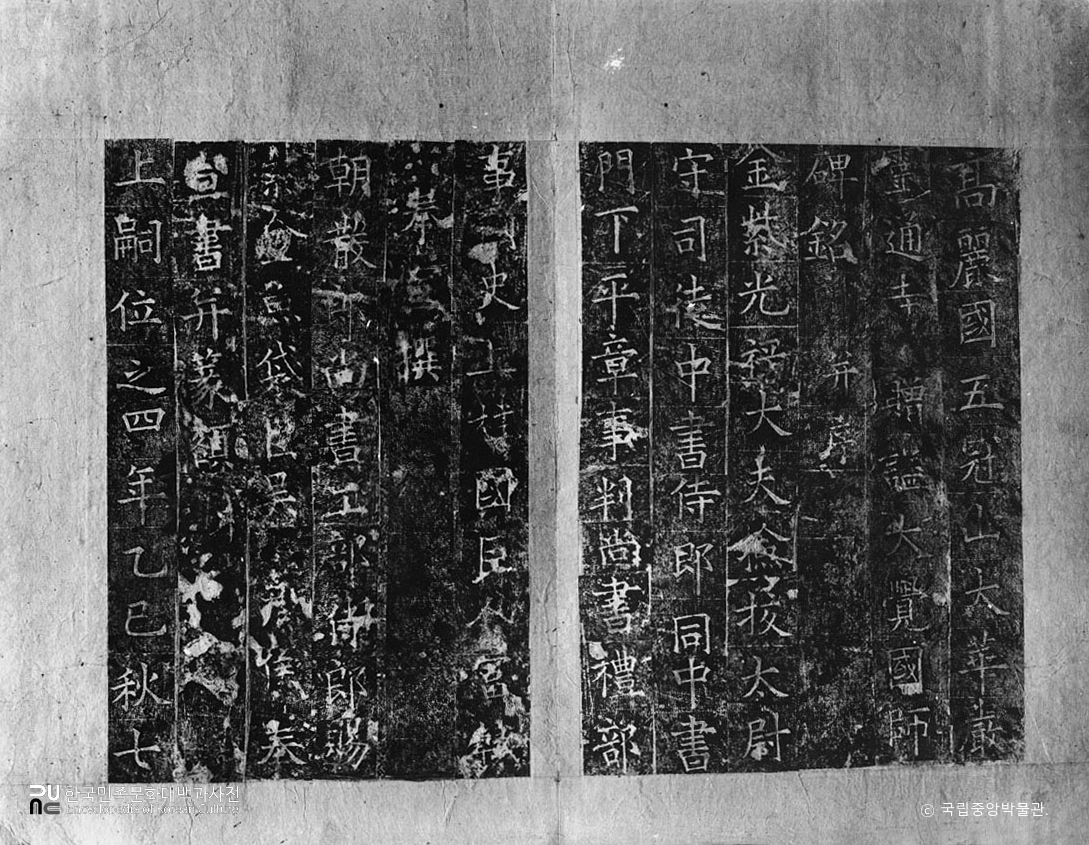 高麗國五冠山大華嚴
靈通寺贈諡大覺國師
碑銘 并序
金紫光祿大夫檢挍太尉
守司徒中書侍郎同中書
門下平章事判尚書禮部
事 史上柱國臣 富軾
奉宣撰
朝散 尚書工部侍郎賜
金魚袋臣吳 侯奉
宣書并篆額
上嗣位之四年乙巳秋七
한국민족문화대백과사전
Encyclopedia of Korean Culture
© 국립중앙박물관.